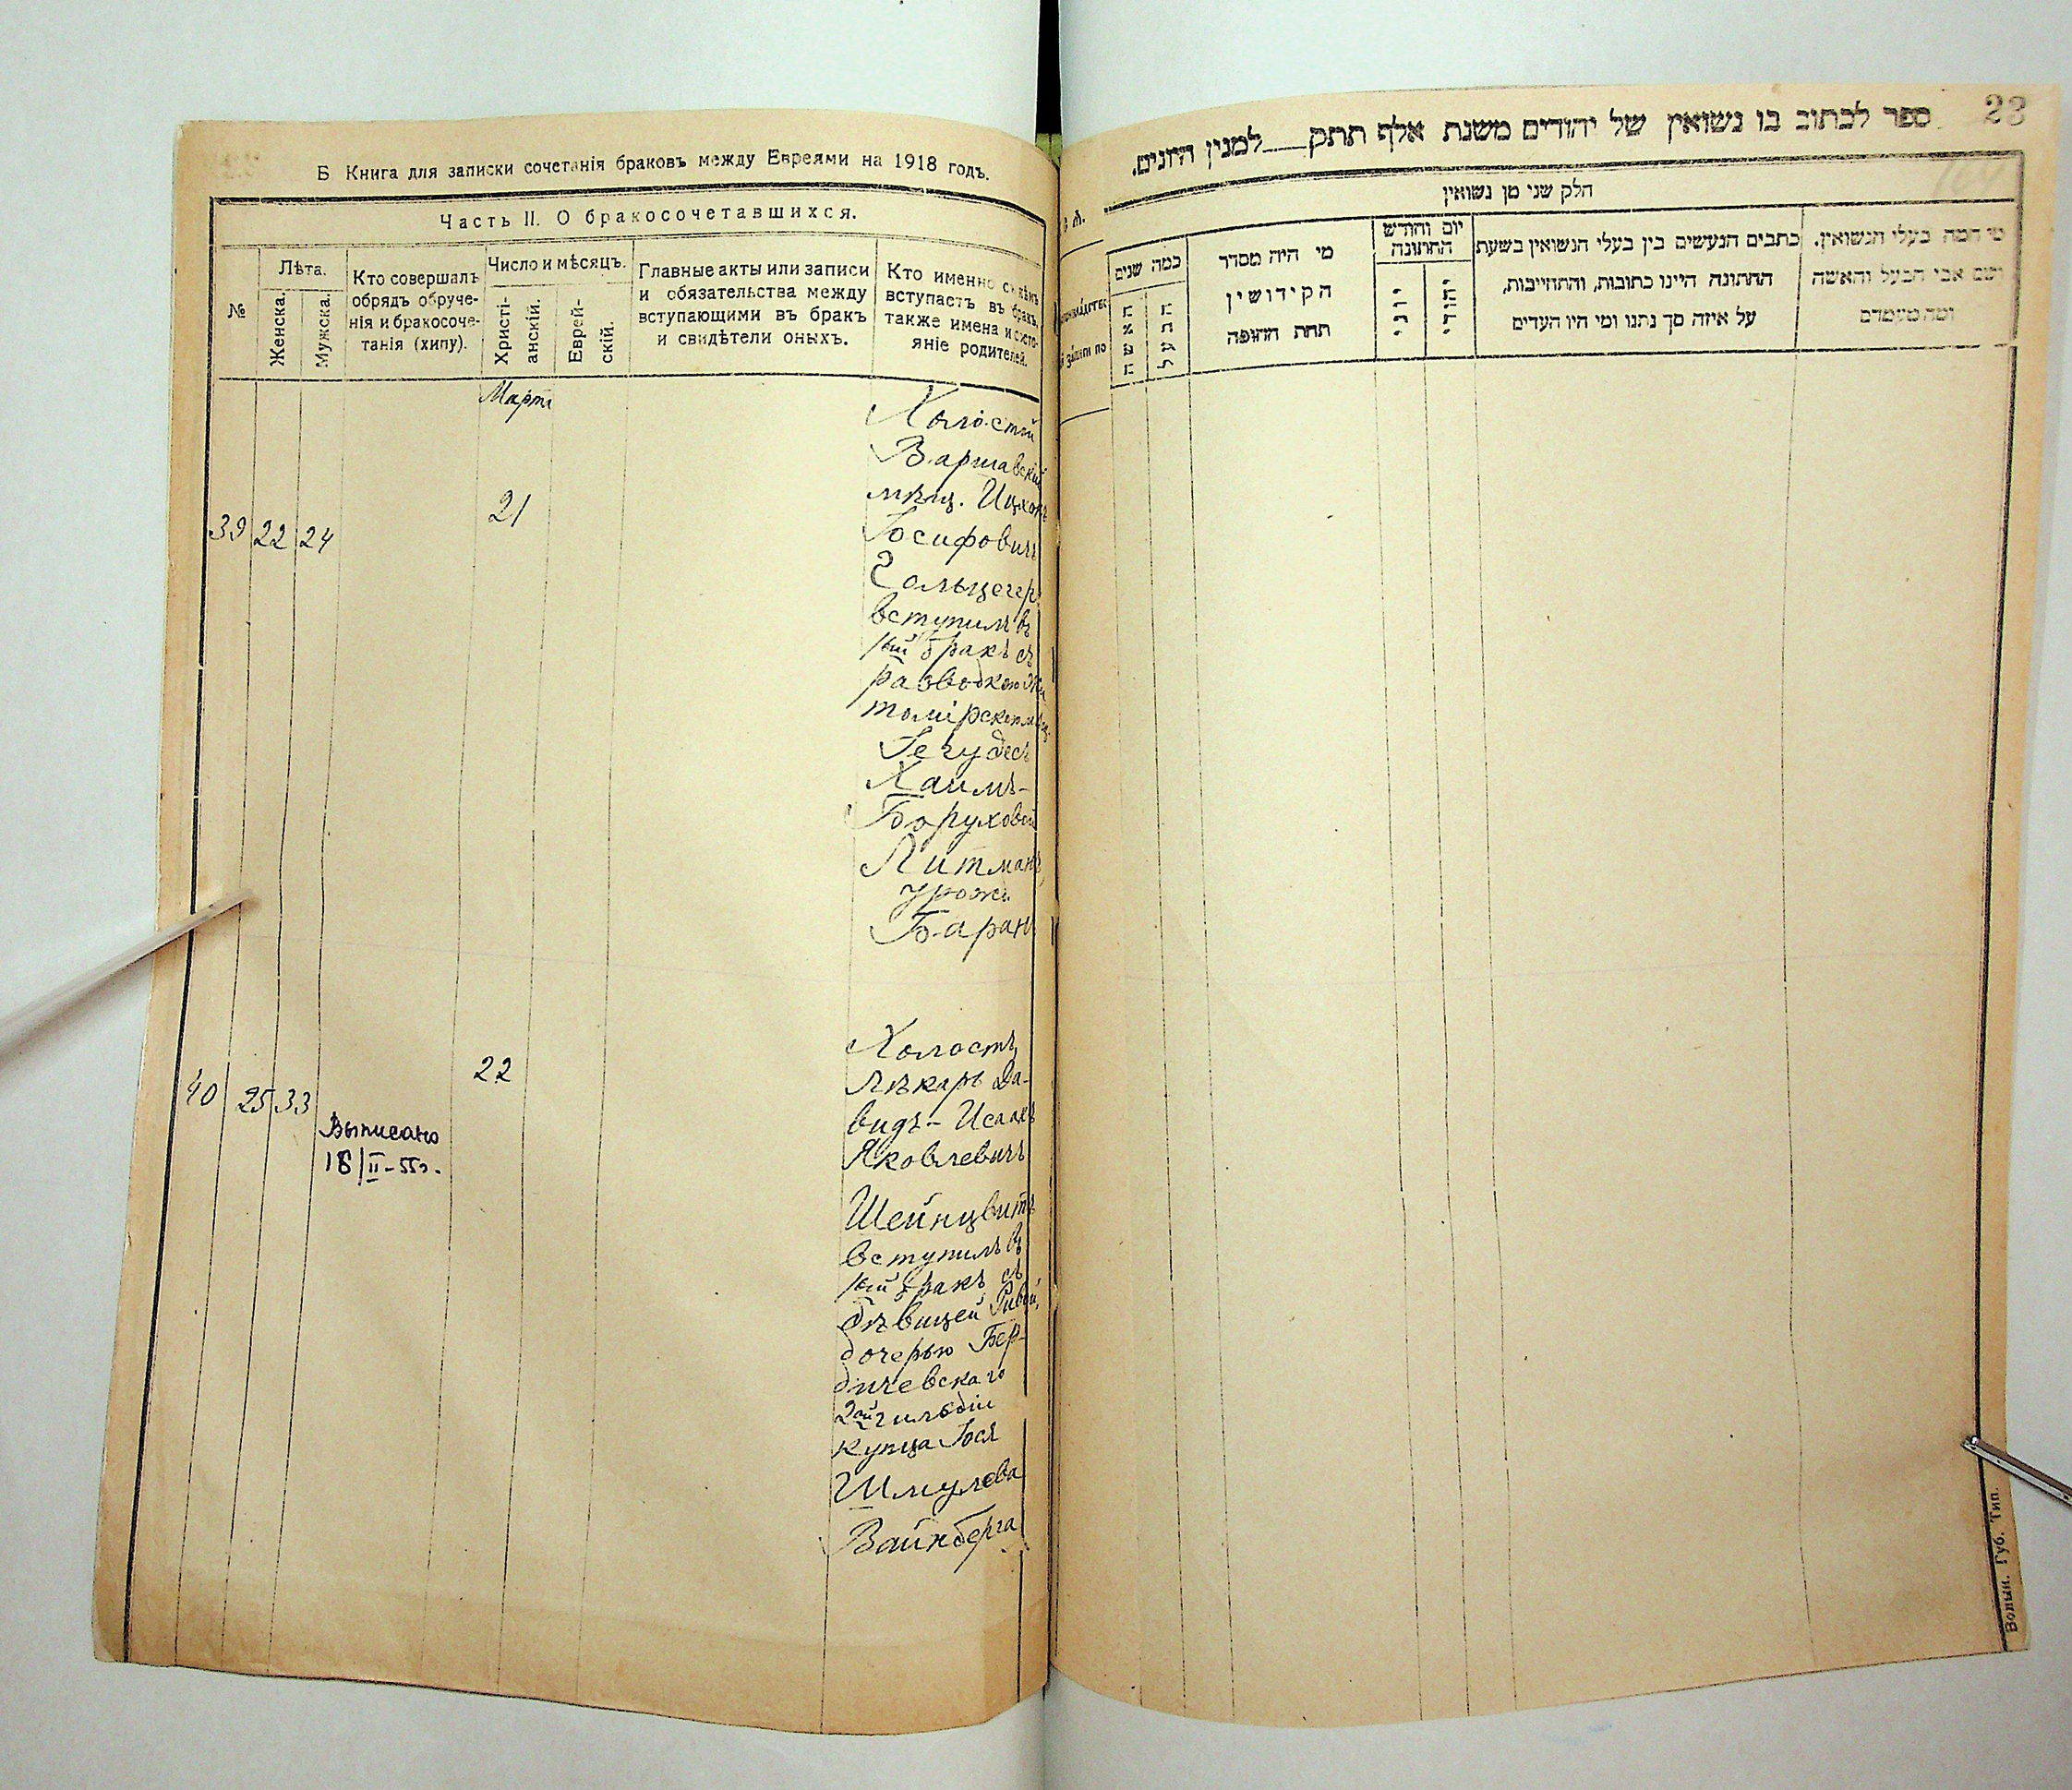 Б Книга для записки сочетанія браковъ между Евреями на 1918 годъ.
Часть II. О бракосочетавшихся.
№
Лѣта.
Женска.
Мужска.
Кто совершалъ
обрядъ обруче-
нія и бракосоче-
танія (хипу).
Число и мѣсяцъ.
Христі-
анскій.
Еврей-
скій.
Главные акты или записи
и обязательства между
вступающими въ бракъ
и свидѣтели оныхъ.
Кто именно съ кѣмъ
вступаетъ въ бракъ,
также имена и состо-
яніе родителей.
Мартъ
39 22 24
21
Холостой
Варшавскій
мѣщ. Ицхокъ
Іосифовичъ
Гольцегер
вступилъ въ
1ый бракъ съ
разводкою Жи
томірск мѣщ.
Іегудесъ
Хаимъ-
Боруховой
Литманъ
урожд
Баранъ
40 25 33
Выписано
18/II-55г.
22
Холостъ
лѣкарь Да-
видъ-Исаакъ
Яковлевичъ
Шейнцвитъ
вступилъ въ
1ый бракъ съ
дѣвицей Ривой,
дочерью Бер-
дичевскаго
2ой гильдіи
купца Іося
Шмулева
Вайнберга
23
ספר לכתוב בו נשואין של יהודים משנת אלף תתק___למנין היונים.
חלק שני מן נשואין
כמה שנים
האשה
הבעל
מי היה מסדר
הקידושין
תחת החופה
יום וחודש
החתונה
יוני
יהודי
כתבים הנעשים בין בעלי הנשואין בשעת
החתונה היינו כתובות, והתחייבות,
על איזה סך נתנו ומי היו העדים
מי המה בעלי הנשואין,
ושם אבי הבעל והאשה
ומה מעמדם
Волын. Губ. Тип.